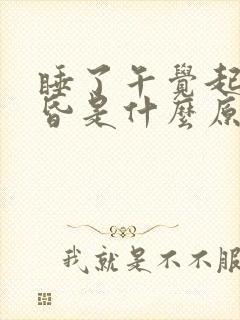 睡了午覺起
昏是什麼原
我就是不不服